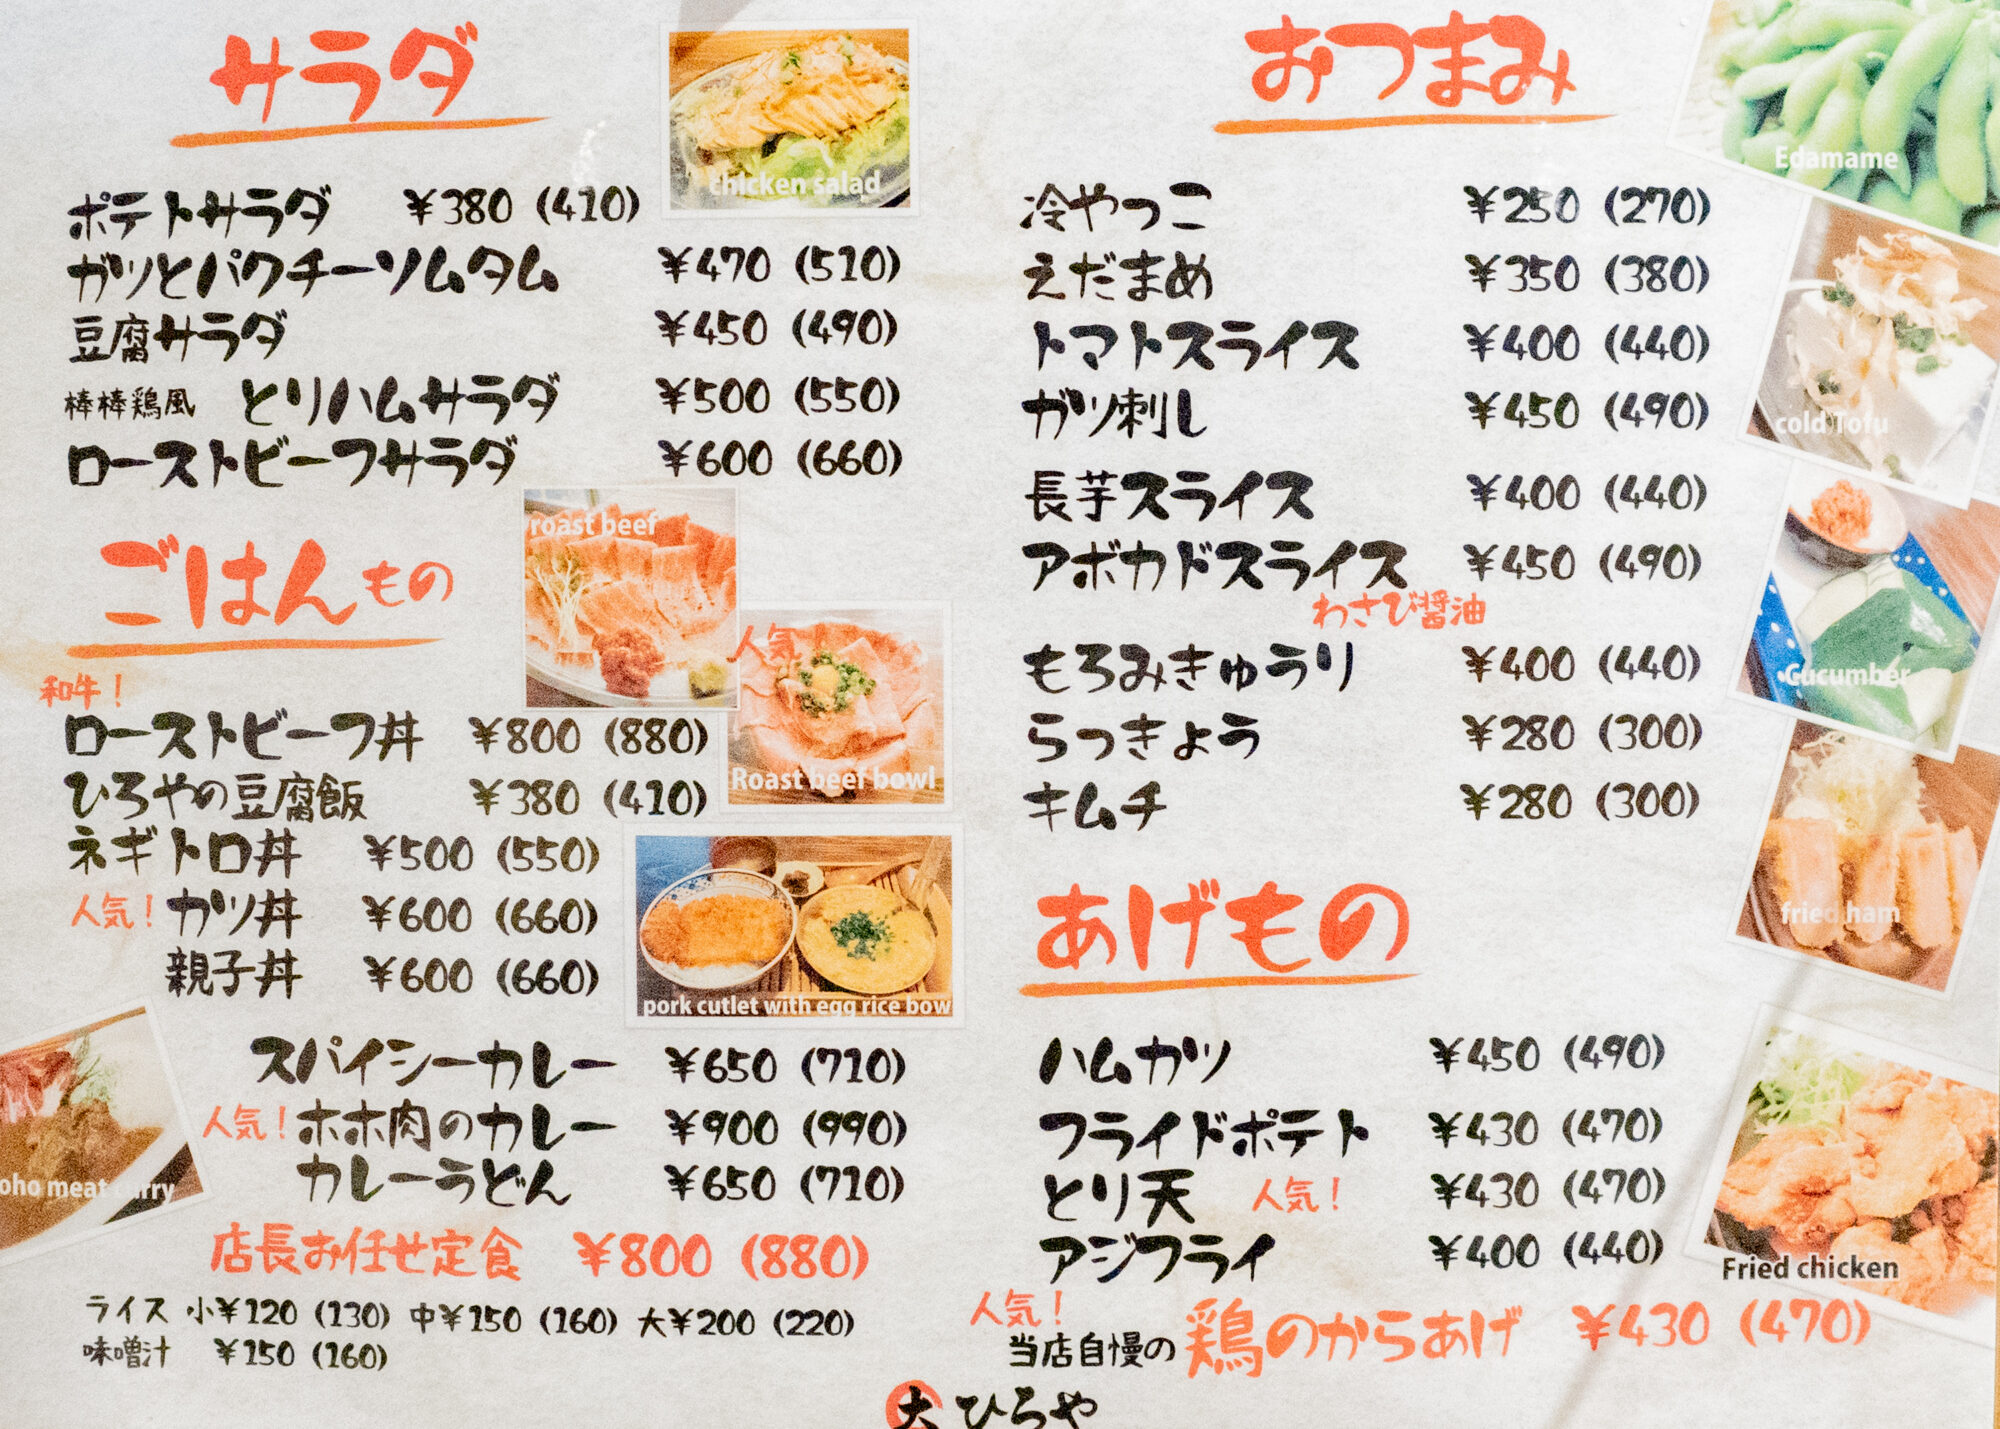 サラダ
chicken salad
ポテトサラダ ¥380 (410)
ガツとパクチーソムタム ¥470 (510)
豆腐サラダ ¥450 (490)
棒棒鶏風 とりハムサラダ ¥500 (550)
ローストビーフサラダ ¥600 (660)
ごはんもの
roast beef
人気!
Roast beef bowl
和牛!
ローストビーフ丼 ¥800 (880)
ひろやの豆腐飯 ¥380 (410)
ネギトロ丼 ¥500 (550)
人気! カツ丼 ¥600 (660)
親子丼 ¥600 (660)
pork cutlet with egg rice bow
スパイシーカレー ¥650 (710)
人気! ホホ肉のカレー ¥900 (990)
カレーうどん ¥650 (710)
oho meat curry
店長お任せ定食 ¥800 (880)
ライス 小¥120 (130) 中¥150 (160) 大¥200 (220)
味噌汁 ¥150 (160)
おつまみ
Edamame
冷やっこ ¥250 (270)
えだまめ ¥350 (380)
トマトスライス ¥400 (440)
ガツ刺し ¥450 (490)
cold Tofu
長芋スライス ¥400 (440)
アボカドスライス ¥450 (490)
わさび醤油
もろみきゅうり ¥400 (440)
Cucumber
らっきょう ¥280 (300)
キムチ ¥280 (300)
fried ham
あげもの
ハムカツ ¥450 (490)
フライドポテト ¥430 (470)
とり天 人気! ¥430 (470)
アジフライ ¥400 (440)
Fried chicken
人気!
当店自慢の 鶏のからあげ ¥430 (470)
大 ひろや